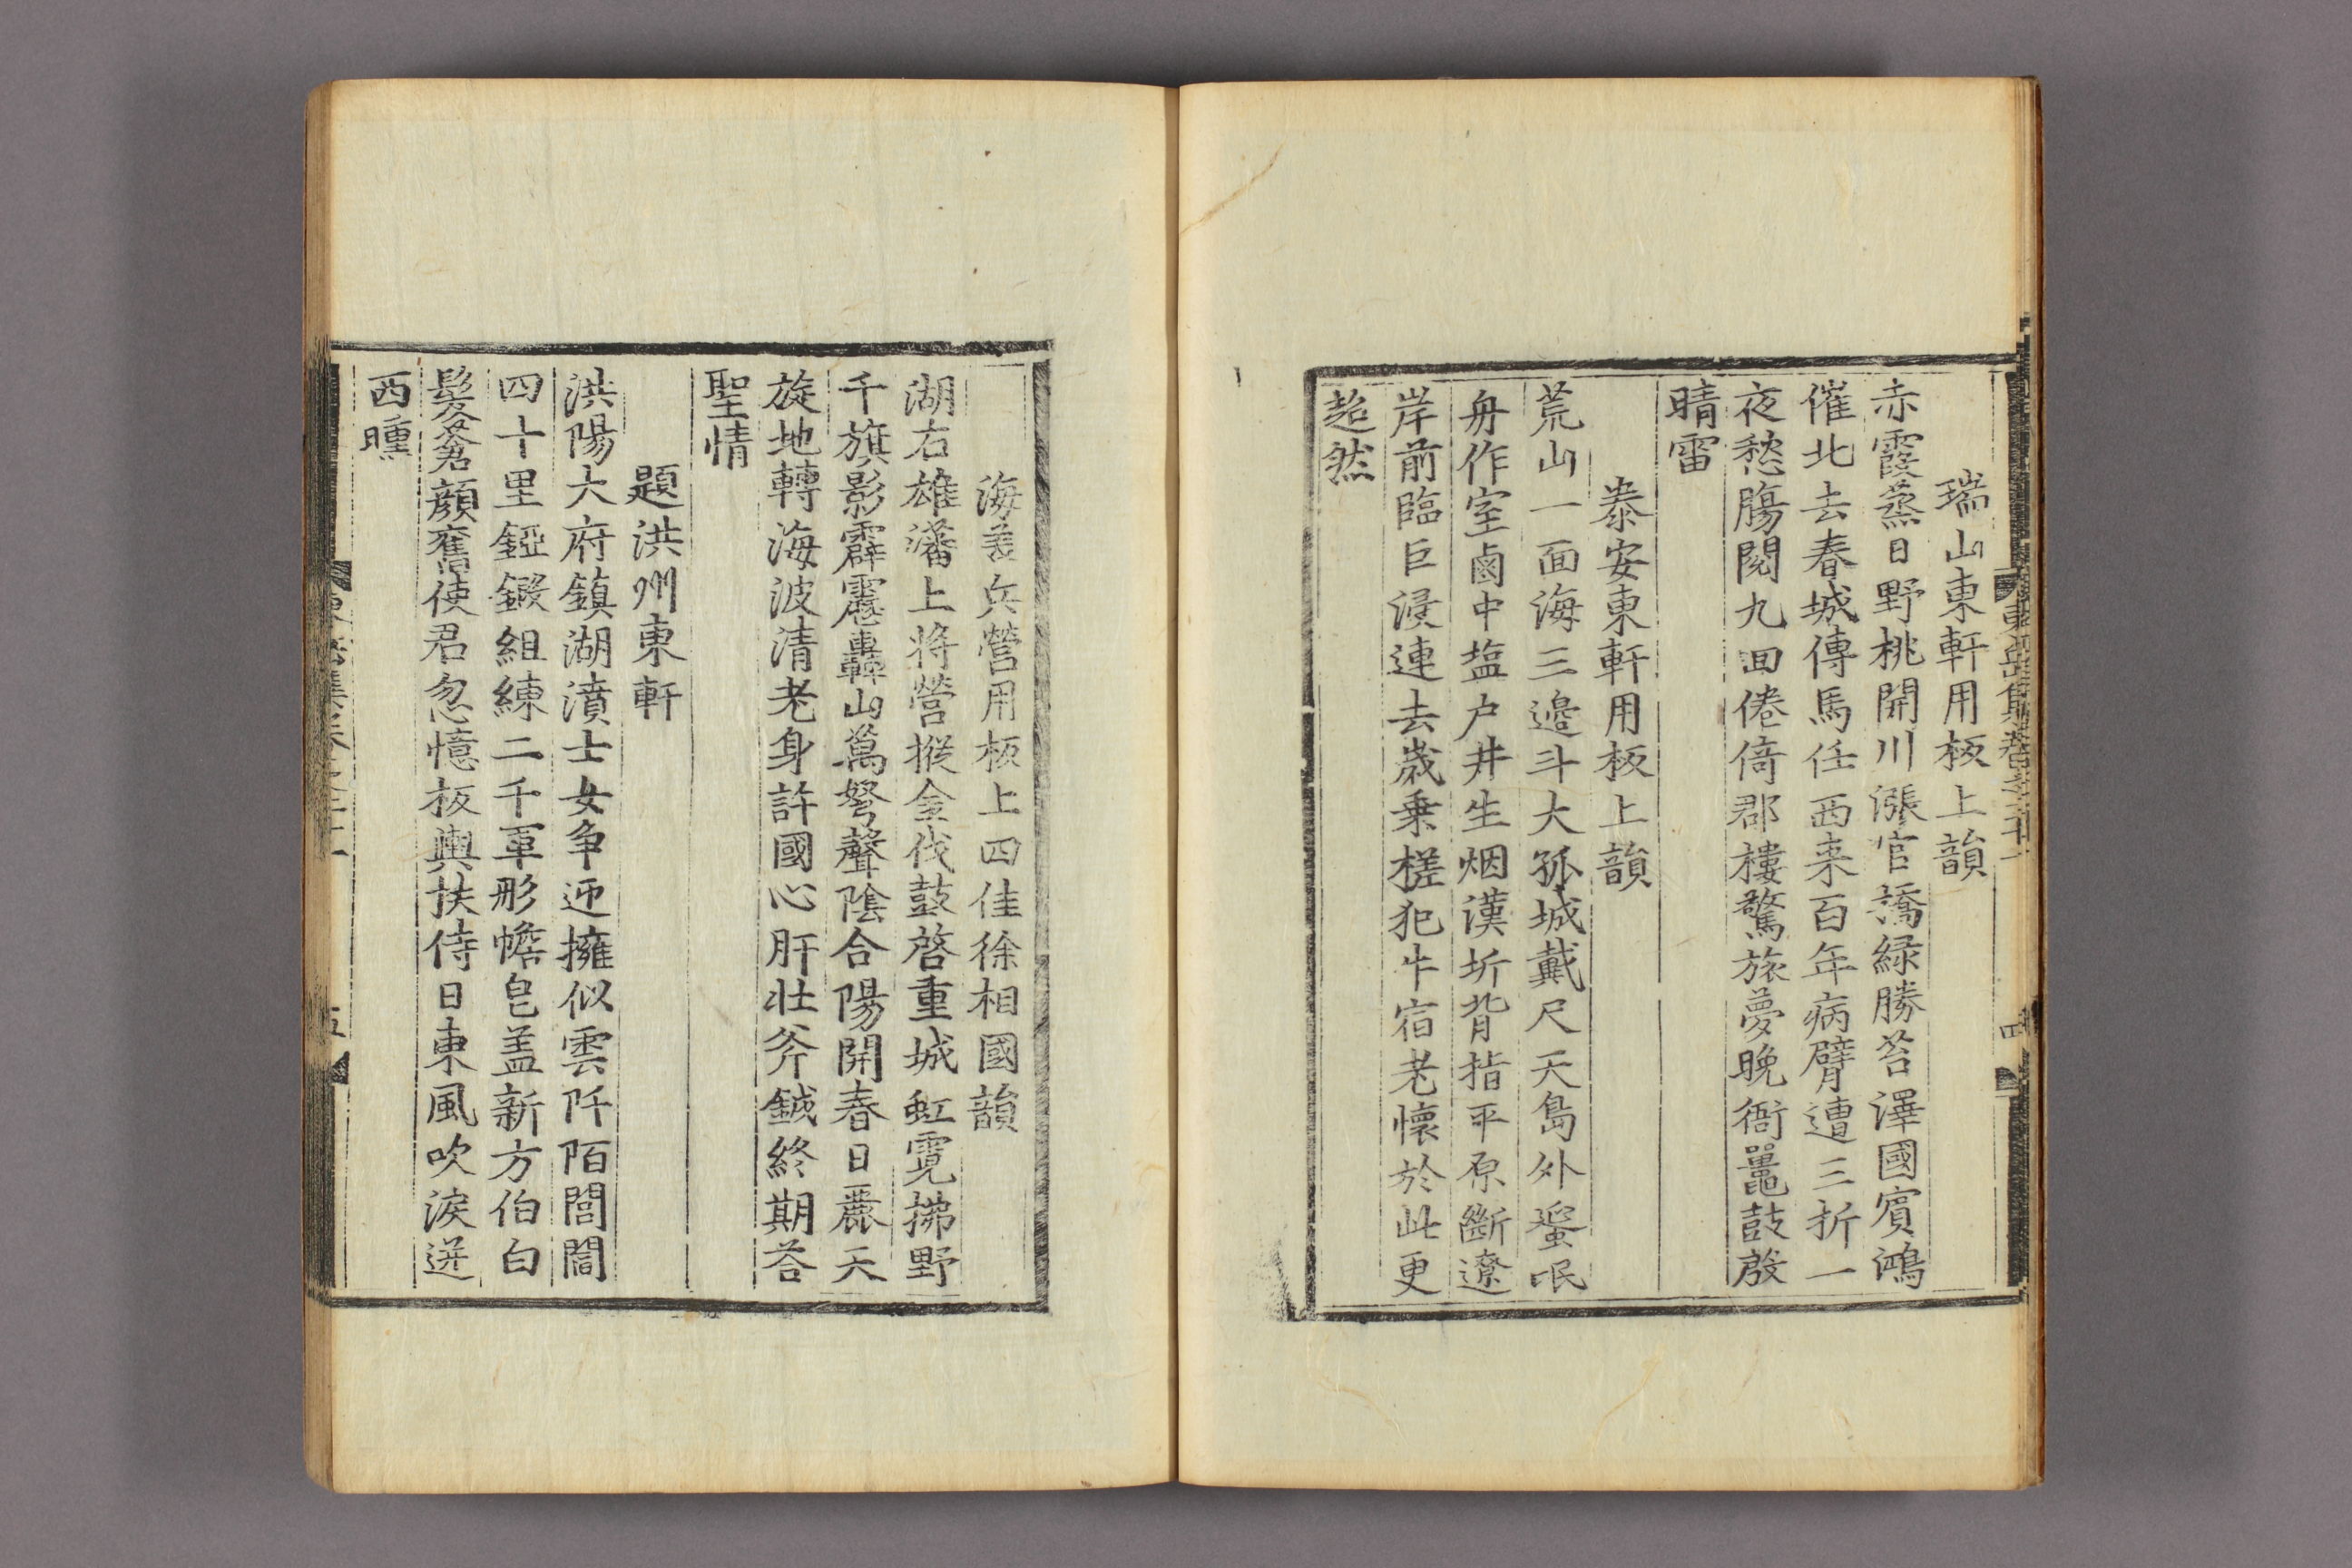 東岳集卷之二十一
四
瑞山東軒用板上韻
赤霞蒸日野桃開川漲官橋綠勝苔澤國賓鴻
催北去春城傳馬任西来百年病臂遭三折一
夜愁膓閱九回倦倚郡樓驚旅夢晩衙鼉鼓殷
晴雷
泰安東軒用板上韻
荒山一面海三邉斗大孤城戴尺天島外蜑氓
舟作室鹵中塩户井生烟漢圻背指平原斷遼
岸前臨巨浸連去歲乗槎犯牛宿老懷於此更
超然
海美兵營用板上四佳徐相國韻
湖右雄藩上將營摐金伐鼓啓重城虹霓拂野
千旗影霹靂轟山萬弩聲陰合陽開春日麗天
旋地轉海波清老身許國心肝壯斧鉞終期荅
聖情
題洪州東軒
洪陽大府鎮湖濆士女争迎擁似雲阡陌閭閻
四十里鋋鍛組練二千軍形幨皂盖新方伯白
髮蒼顏舊使君忽憶板輿扶侍日東風吹淚迸
西曛
五